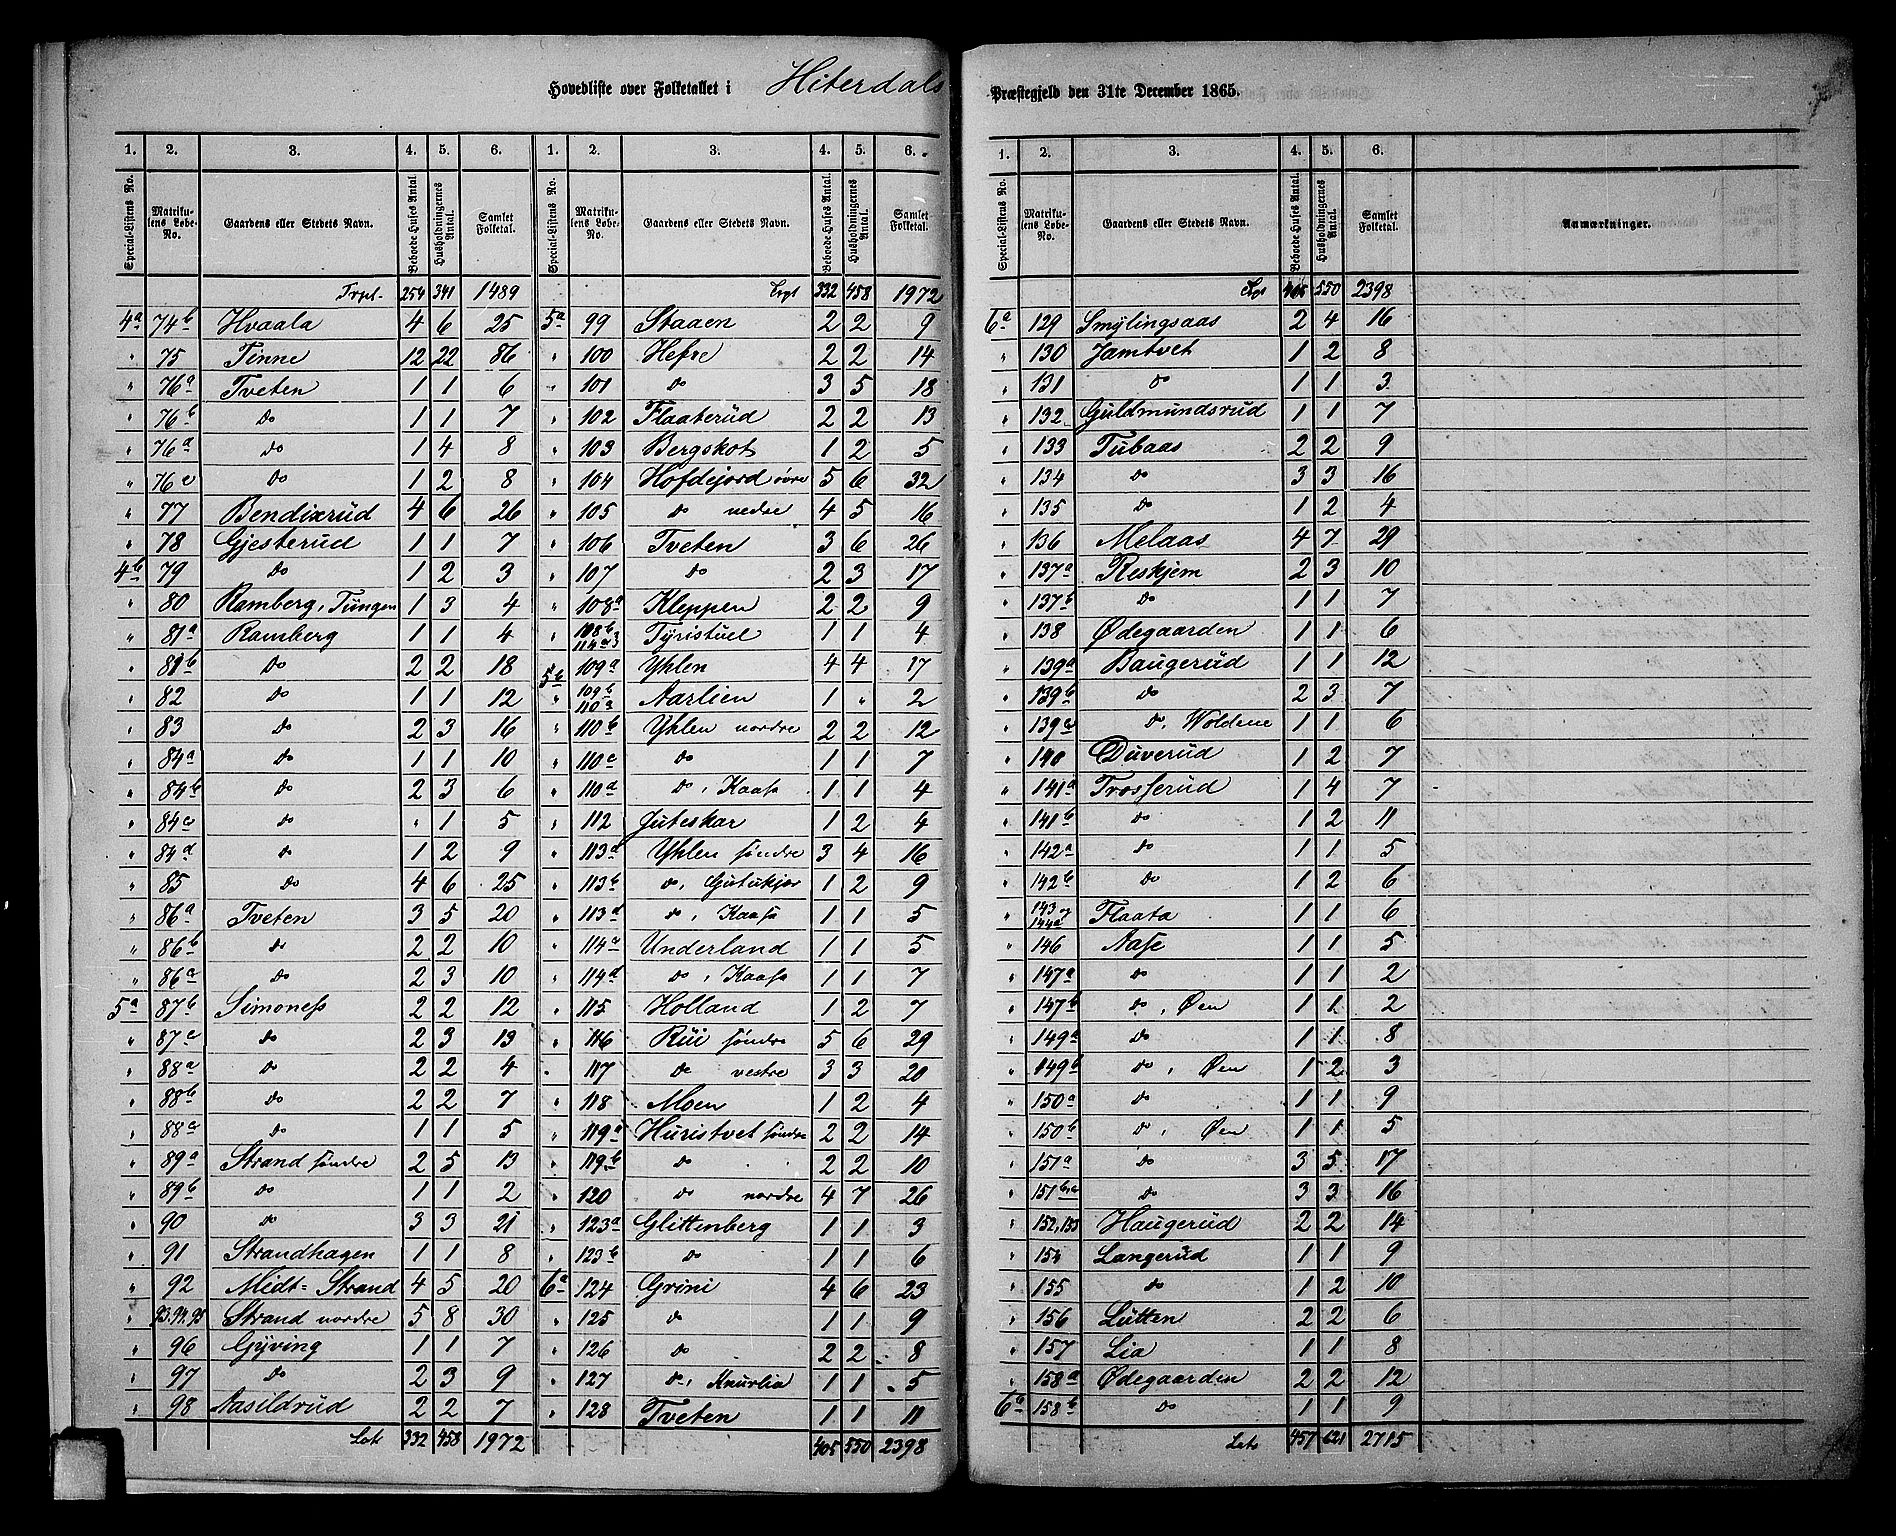 Hovedliste over Folketallet i Hiterdals Præstegjeld den 31te December 1865.
1. 2. 3. 4. 5. 6. 1. 2. 3. 4. 5. 6.
Special-Listens No. Matrikulens Løbe-No. Gaardens eller Stedets Navn. Beboede Huses Antal. Husholdningernes Antal. Samlet Folketal. Special-Listens No. Matrikulens Løbe-No. Gaardens eller Stedets Navn. Beboede Huses Antal. Husholdningernes Antal. Samlet Folketal.
Trpt. 254 341 1489 Trpt 332 458 1972
4a 74b Hvaala 4 6 25 5a 99 Staaen 2 2 9
" 75 Tinne 12 22 86 " 100 Hefre 2 2 14
" 76a Tveten 1 1 6 " 101 do 3 5 18
" 76b do 1 1 7 " 102 Flaaterud 2 2 13
" 76a do 1 4 8 " 103 Bergskot 1 2 5
" 76c do 1 2 8 " 104 Hofdejord øvre 5 6 32
" 77 Bendixrud 4 6 26 " 105 do nedre 4 5 16
" 78 Gjesterud 1 1 7 " 106 Tveten 3 6 26
4b 79 do 1 2 3 " 107 do 2 3 17
" 80 Ramberg, Tungen 1 3 4 " 108a Kleppen 2 2 9
" 81a Ramberg 1 1 4 " 108b 114a3 Tyristuel 1 1 4
" 81b do 2 2 18 5b 109a Yhlen 4 4 17
" 82 do 1 1 12 " 109b 110a Aarlien 1 " 2
" 83 do 2 3 16 " 110b Yhlen nordre 2 2 12
" 84a do 1 1 10 " 110c do 1 1 7
" 84b do 2 3 6 " 110d do, Kaasa 1 1 4
" 84c do " 1 5 " 112 Juteskar 1 2 4
" 84d do 1 2 9 " 113a Yhlen søndre 3 4 16
" 85 do 4 6 25 " 113b do, Gutukjær 1 2 9
" 86a Tveten 3 5 20 " 113d do, Kaasa 1 1 5
" 86b do 2 2 10 " 114c Underland 1 1 5
" 86a do 2 3 10 " 114d do, Kaasa 1 1 7
5a 87b Simoness 2 2 12 " 115 Holland 1 2 7
" 87c do 2 3 13 " 116 Rui søndre 5 6 29
" 88a do 2 2 4 " 117 do vestre 3 3 20
" 88b do 2 2 7 " 118 Moen 1 2 4
" 88c do 1 1 5 " 119a Huristvet søndre 2 2 14
" 89a Strand søndre 2 5 13 " 119b do 2 2 10
" 89b do 1 1 2 " 120 do nordre 4 7 26
" 90 do 3 3 21 " 123a Glittenberg 1 1 3
" 91 Strandhagen 1 1 8 " 123b do 1 1 6
" 92 Midt-Strand 4 5 20 6a 124 Grini 4 6 23
" 93.94.95 Strand nordre 5 8 30 " 125 do 1 1 9
" 96 Gyving 1 1 7 " 126 do 2 2 8
" 97 do 2 3 9 " 127 do, Knurlia 1 1 5
" 98 Aasildrud 2 2 7 " 128 Tveten 1 1 11
Lat. 332 458 1972 405 550 2398
1. 2. 3. 4. 5. 6. 7.
Special-Listens No. Matrikulens Løbe-No. Gaardens eller Stedets Navn. Beboede Huses Antal. Husholdningernes Antal. Samlet Folketal. Anmærkninger.
Trpt 405 550 2398
6a 129 Smylingsaas 2 4 16
" 130 Jamtvet 1 2 8
" 131 do 1 1 3
" 132 Guldmundsrud 1 1 7
" 133 Tubaas 2 2 9
" 134 do 3 3 16
" 135 do 1 2 4
" 136 Melaas 4 7 29
" 137a Reskjem 2 3 10
" 137b do 1 1 7
" 138 Ødegaarden 1 1 6
" 139a Baugerud 1 1 12
" 139b do 2 3 7
" 139c do, Woldene 1 1 6
" 140 Duverud 1 2 7
" 141a Trosserud 1 4 7
" 141b do 1 2 11
" 142a do 1 1 5
" 142b do 1 2 6
" 143 144a Flaata 1 1 6
" 146 Aase 1 1 5
" 147a do 1 1 2
" 147b do, Øen 1 1 2
" 149a do 1 1 8
" 149b do, Øen 1 2 3
" 150a do 1 1 9
" 150b do, Øen 1 1 5
" 151a do 3 5 17
" 151b,c do 3 3 16
" 152,153 Haugerud 2 2 14
" 154 Langerud 1 1 9
" 155 do 1 2 10
" 156 Lutten 2 2 6
" 157 Lia 1 1 8
" 158a Ødegaarden 2 2 12
6a 158b do 1 1 9
Lat. 457 621 2715